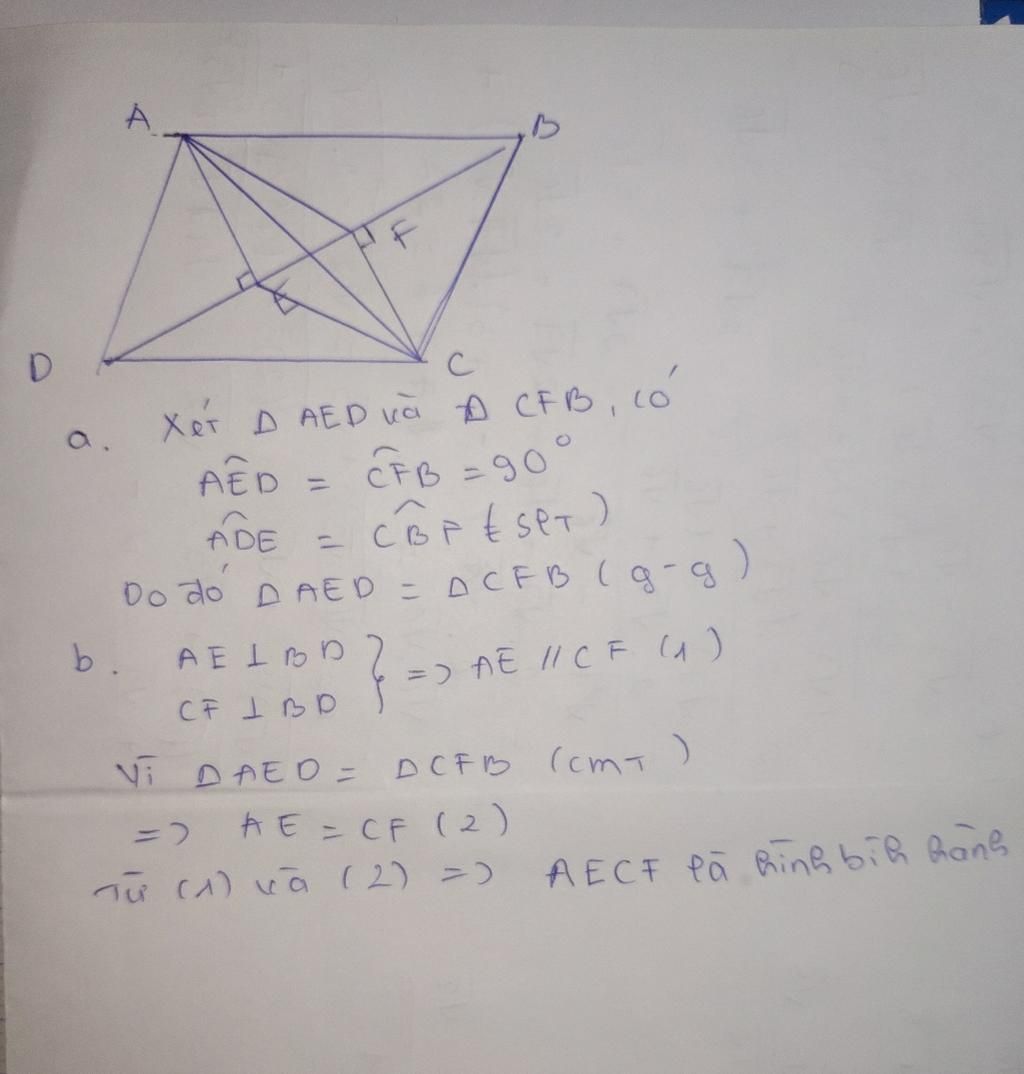 A B
F
E
D C
a. Xét Δ AED và Δ CFB, có
AÊD = CF̂B = 90°
AD̂E = CB̂F (SLT)
Do đó Δ AED = Δ CFB (g-g)
b. AE ⊥ BD
CF ⊥ BD } => AE // CF (1)
Vì Δ AED = Δ CFB (cmT)
=> AE = CF (2)
Từ (1) và (2) => AECF là hình bìh hành